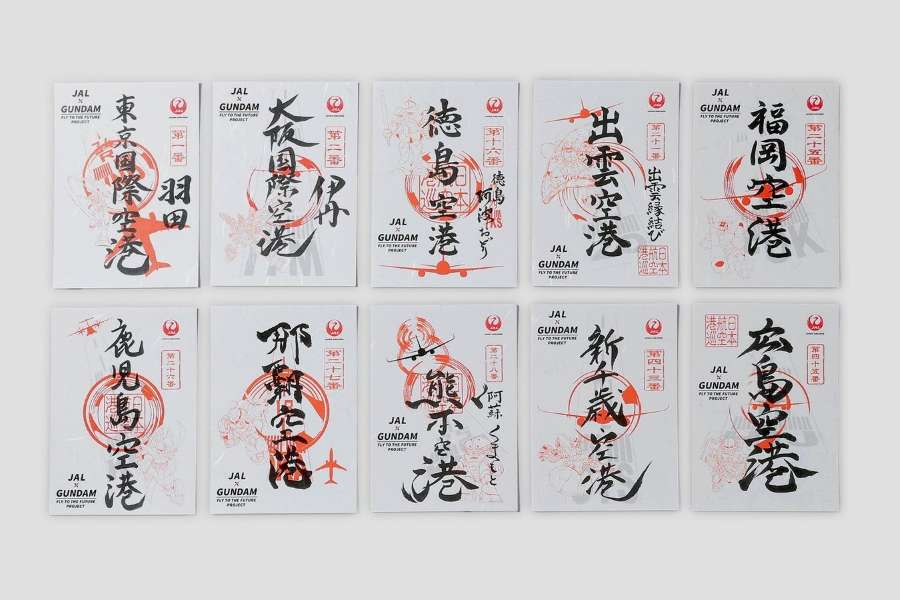 JAL
×
GUNDAM
FLY TO THE FUTURE
PROJECT
第一番
東京国際空港
羽田
JAL
×
GUNDAM
FLY TO THE FUTURE
PROJECT
第二番
大阪国際空港
伊丹
第十六番
徳島空港
徳島
阿波おどり
日本
航空
港巡
JAL
×
GUNDAM
FLY TO THE FUTURE
PROJECT
第二十一番
出雲空港
出雲縁結び
日本
航空
港巡
JAL
×
GUNDAM
FLY TO THE FUTURE
PROJECT
JAL
×
GUNDAM
FLY TO THE FUTURE
PROJECT
第二十五番
福岡空港
第二十六番
鹿児島空港
JAL
×
GUNDAM
FLY TO THE FUTURE
PROJECT
第二十七番
那覇空港
JAL
×
GUNDAM
FLY TO THE FUTURE
PROJECT
第二十八番
熊本空港
阿蘇くまもと
JAL
×
GUNDAM
FLY TO THE FUTURE
PROJECT
JAL
×
GUNDAM
FLY TO THE FUTURE
PROJECT
第四十三番
新千歳空港
日本
航空
港巡
第四十五番
広島空港
JAL
×
GUNDAM
FLY TO THE FUTURE
PROJECT